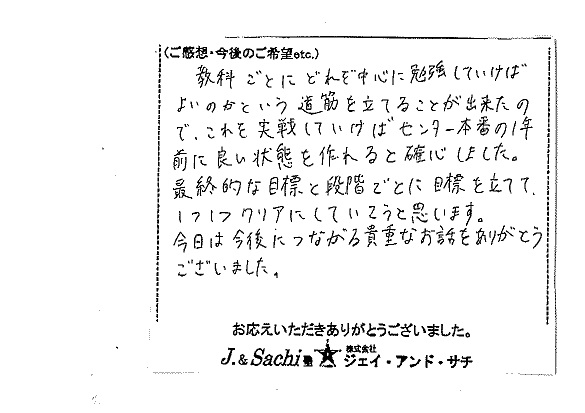 (ご感想・今後のご希望etc.)
教科ごとにどれを中心に勉強していけば
よいのかという道筋を立てることが出来たの
で、これを実戦していけばセンター本番の1年
前に良い状態を作れると確心しました。
最終的な目標と段階ごとに目標を立てて、
1つ1つクリアにしていこうと思います。
今日は今後につながる貴重なお話をありがとう
ございました。
お応えいただきありがとうございました。
J.&Sachi塾 株式会社 ジェイ・アンド・サチ